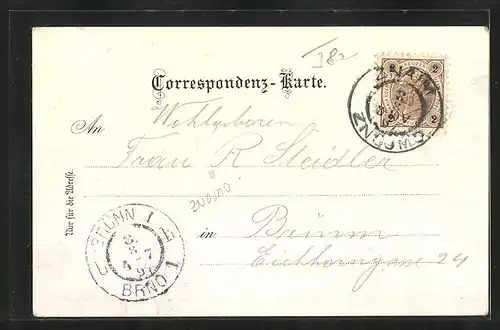 382
Correspondenz-Karte.
ZNAIM
ZNOJMO
2 2
An Wohlgeboren
Frau R Steidler
Nur für die Adresse.
in Brünn
24
BRÜNN 1
BRNO 1